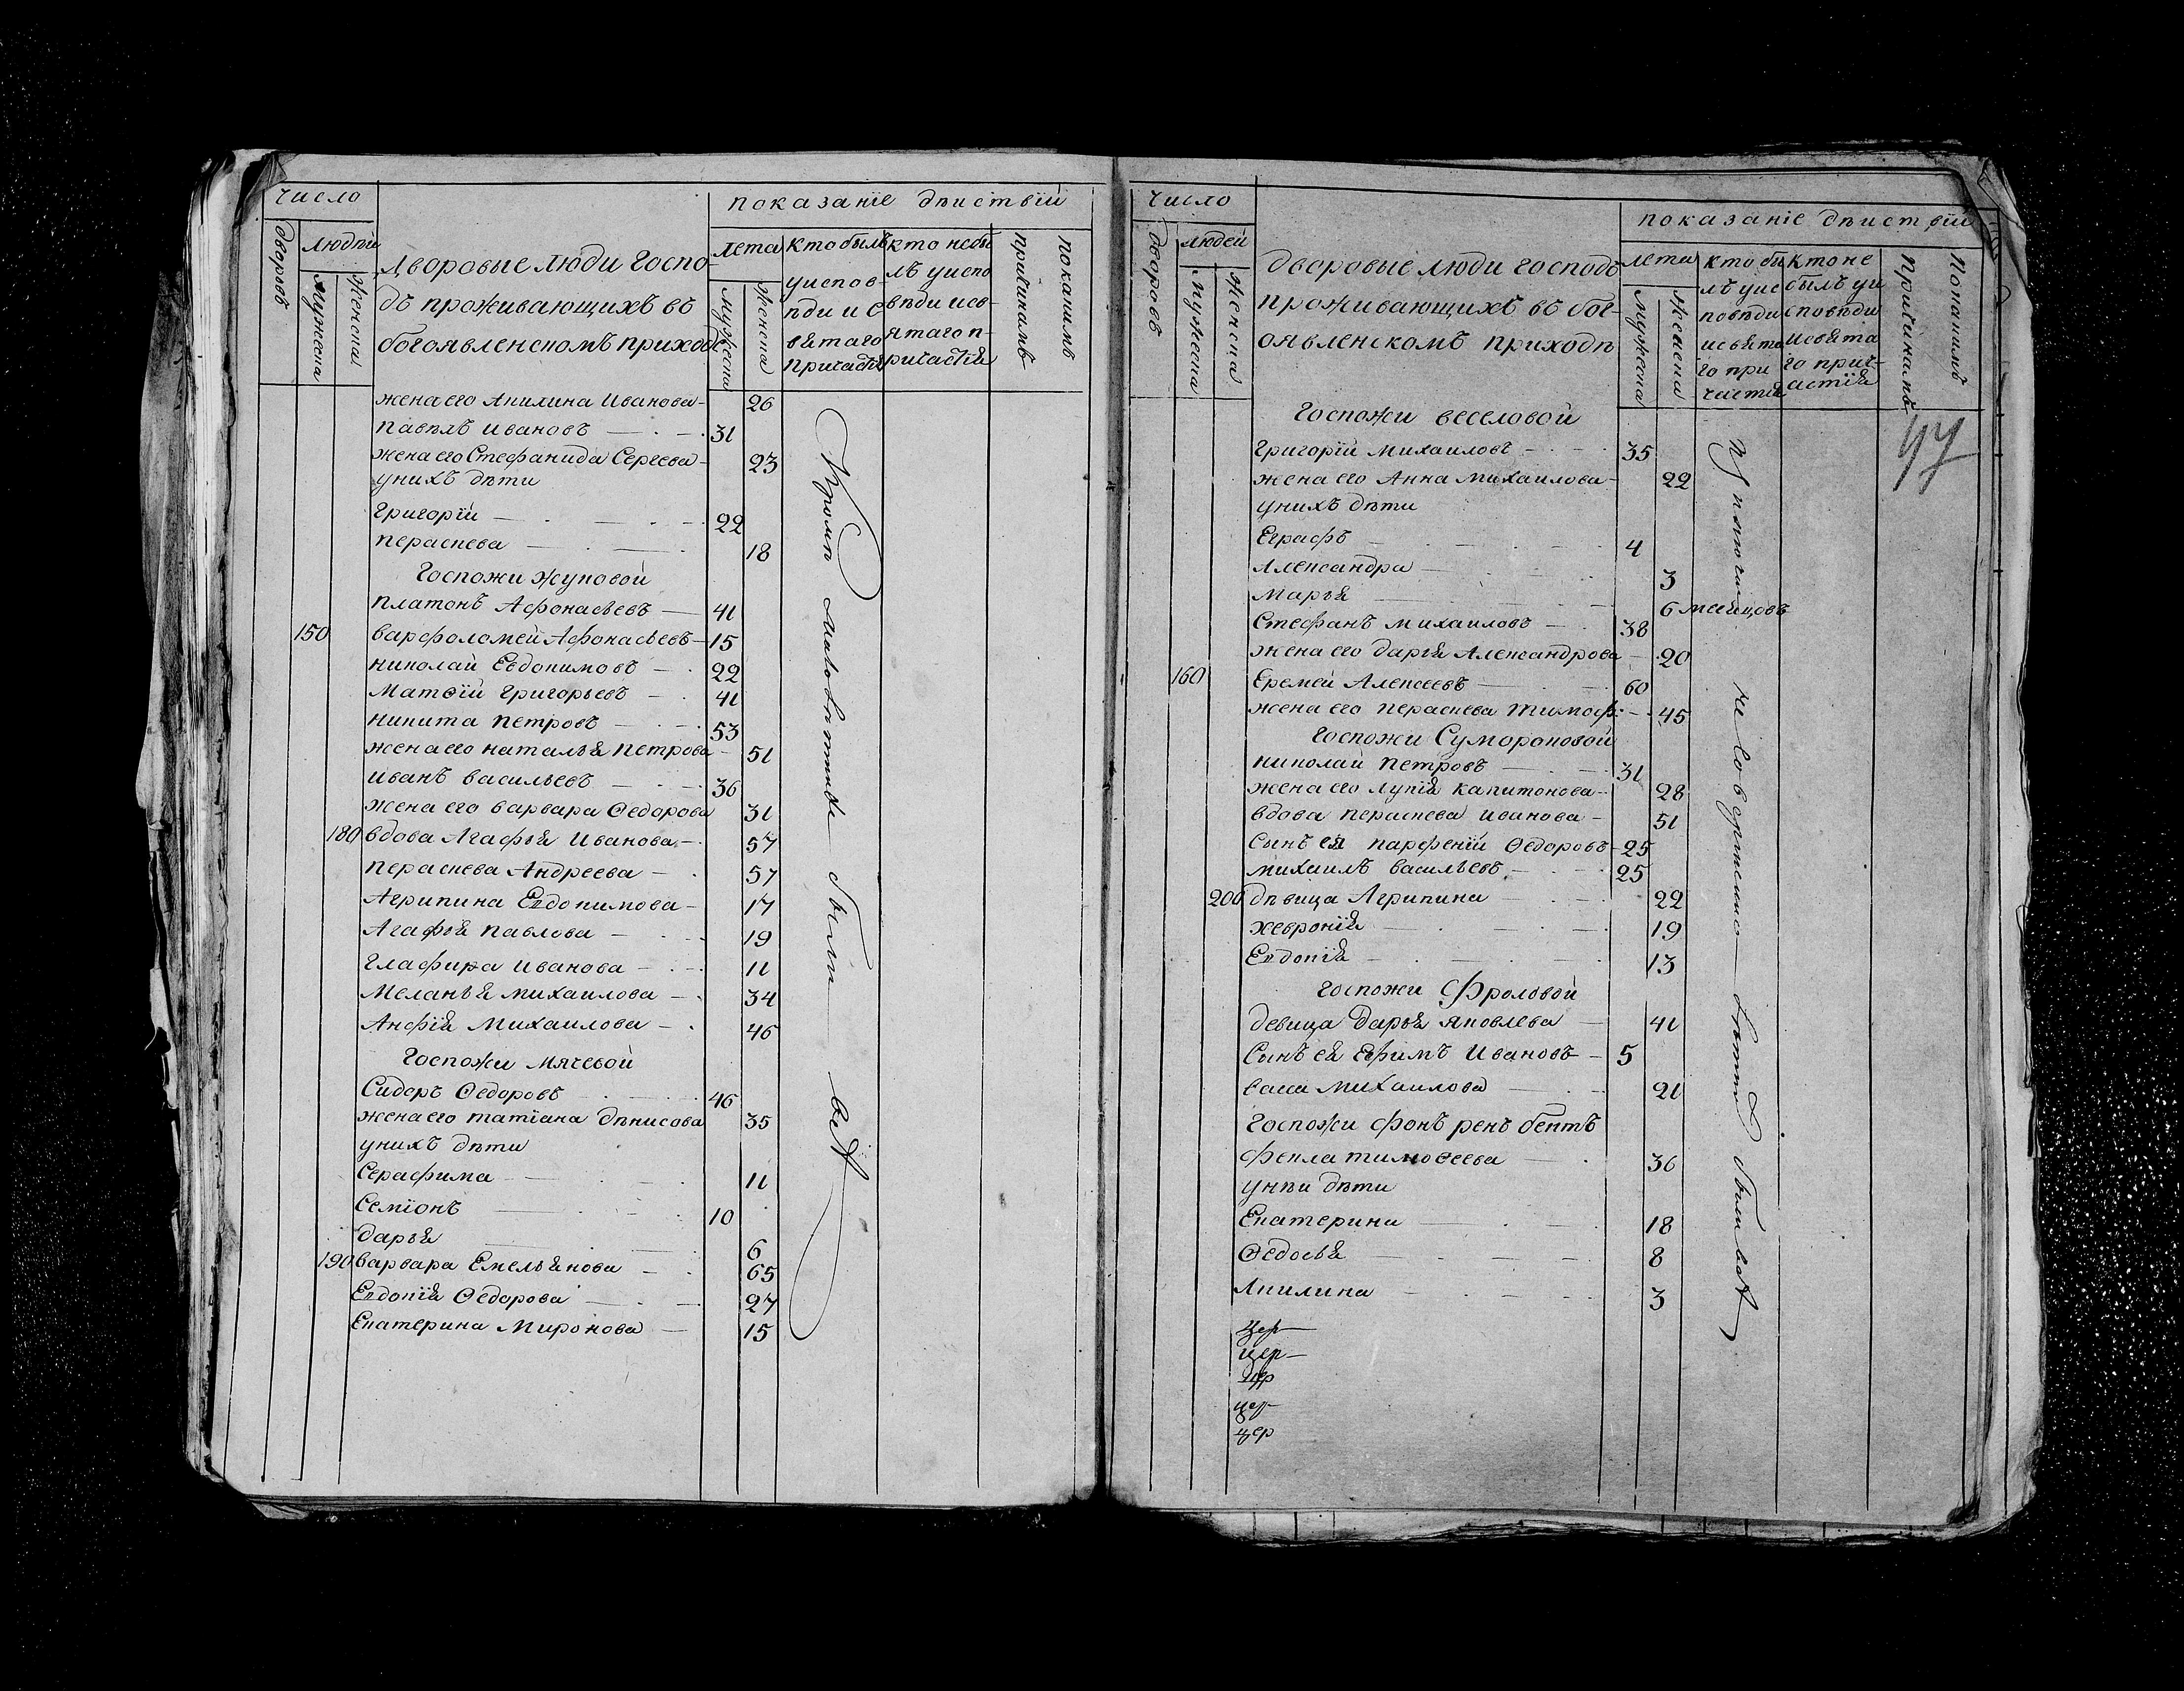 число
показанїе дѣиствїи
дворовъ
людѣи
мужеска
женска
дворовые люди госпо-
дъ проживающихъ въ
богоявленскомъ приходѣ
лета
мужеска
женска
кто былъ
уиспов-
ѣди и с
вятаго
причастїя
кто небы
лъ уиспо
вѣди исв-
ятаго п-
ричастїя
покакимъ
причинамъ
жена его Акилина Иванова - 26
павелъ ивановъ — 31
жена его Стефанида Сергева - 23
унихъ дѣти
григорїи — 22
параскева — 18
Госпожи жуковой
платонъ Афонасьевъ — 41
150 варфоломей Афонасьевъ — 15
николай Евдокимовъ — 22
матѳїй григорьевъ — 41
никита петровъ — 53
жена его наталья петрова — 51
иванъ васильевъ — 36
жена его варвара Ѳедорова 31
180 вдова Агафья Иванова — 57
пераскева Андреева — 57
Агрипина Евдокимова — 17
Агафья павлова — 19
глафира иванова — 11
меланья михаилова — 34
Анфїя михаилова — 46
Госпожи мячевой
Сидеръ Ѳедоровъ 46
жена его татїана дѣнисова 35
унихъ дѣти
Серафима 11
Семїонъ 10
дарья 6
190 варвара Емельянова — 65
Евдокїя Ѳедорова — 27
Екатерина миронова — 15
Кромѣ малолѣтныхъ были всѣ
число
показанїе дѣиствїи
дворовъ
людей
мужеска
женска
дворовые люди господъ
проживающихъ въ бог-
оявленскомъ приходѣ
лета
мужеска
женска
кто бы
лъ уис
повѣди
исвята
го при
частїя
кто не
былъ уи
сповѣди
исвята
го прич-
астїя
причинамъ
покакимъ
47
Госпожи веселовой
григорїй михаиловъ — 35
жена его Анна михаилова — 22
унихъ дѣти
Еграфъ 4
Александра — 3
марья 6 месяцовъ
Стефанъ михаиловъ — 38
жена его дарья Александрова — 20
160 Еремей Алексеевъ — 60
жена его пераскева тимоф: — 45
Госпожи Сумороковой
николай петровъ — 31
жена его лукїя капитонова — 28
вдова пераскева иванова — 51
Сынъ ея парфенїй Ѳедоровъ — 25
михаилъ васильевъ — 25
200 дѣвица Агрипина 22
хевронїя — 19
Евдокїя — 13
госпожи Фроловой
девица дарья яковлева — 41
Сынъ ея Ефимъ Ивановъ — 5
саша михаилова 21
госпожи фонъ ренъ бентъ
фекла тимоѳеева — 36
унѣи дѣти
Екатерина 18
Ѳедосья 8
Акилина 3
цер—
цер—
цер
цер
цер